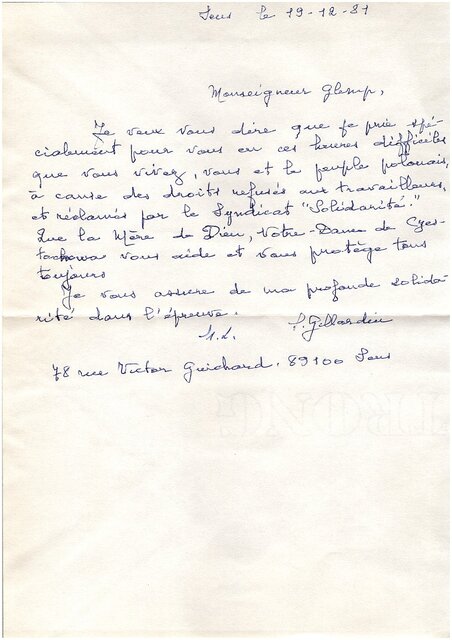 Sens le 19-12-81
Monseigneur Glemp,
Je veux vous dire que je prie spé-
cialement pour vous en ces heures difficiles
que vous vivez, vous et le peuple polonais,
à cause des droits refusés aux travailleurs,
et réclamés par le Syndicat "Solidarité."
Que la Mère de Dieu, Notre-Dame de Czes-
tochowa vous aide et vous protège tous
toujours
Je vous assure de ma profonde solida-
rité dans l'épreuve.
78 rue Victor Guichard. 89100 Sens